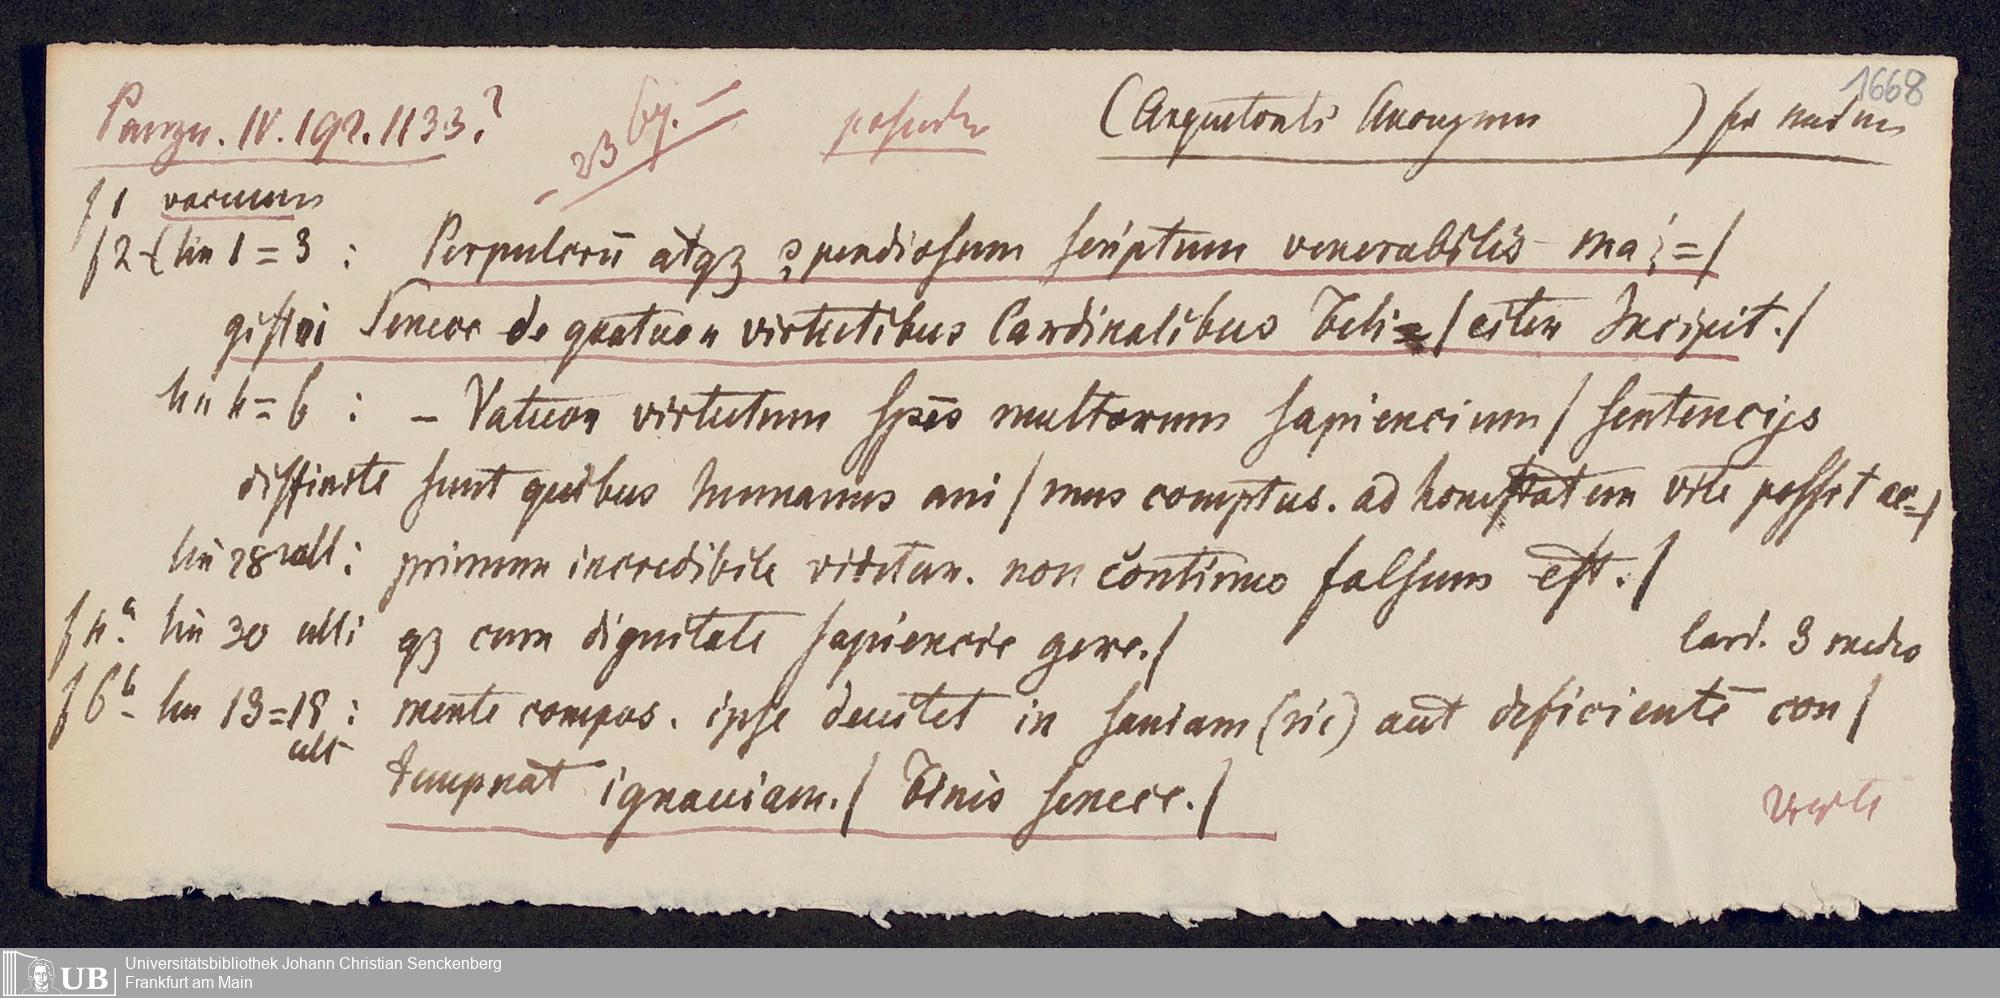 1668
Panzer. IV. 192. 1133.?
23 By.
(Argentorati Anonymus )
f 1 vacuum
f 2 lin 1=3 : Perpulcrū atqꝫ ꝯpendiosum scriptum venerabilis ma⁊=/
gistri Senece de quatuor virtutibus Cardinalibus Feli=/citer Incipit./
lin 4=6 : – Vatuor virtutum spēs multorum sapiencium / sentencijs
diffinite sunt quibus humanus ani / mus comptus. ad honestatem vite posset ac=/
lin 28 ult: primum incredibile videtur. non continuo falsum est./
f 4.a lin 30 ult: qꝫ cum dignitate sapiencie gere./
Card. 3 medio
f 6b lin 13=18 ult : mente compos. ipse deuitet in saniam (sic) aut deficientē con /
tempnat ignauiam./ Finis senece./
verte
Universitätsbibliothek Johann Christian Senckenberg
Frankfurt am Main
UB